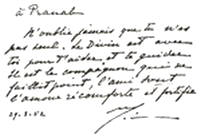 à Pranab
N'oublie jamais que tu n'es
pas seul. Le Divin est avec
toi pour t'aider et te guider.
Il est le compagnon qui ne
faillit point, l'ami dont
l'amour réconforte et fortifie
29.8.52